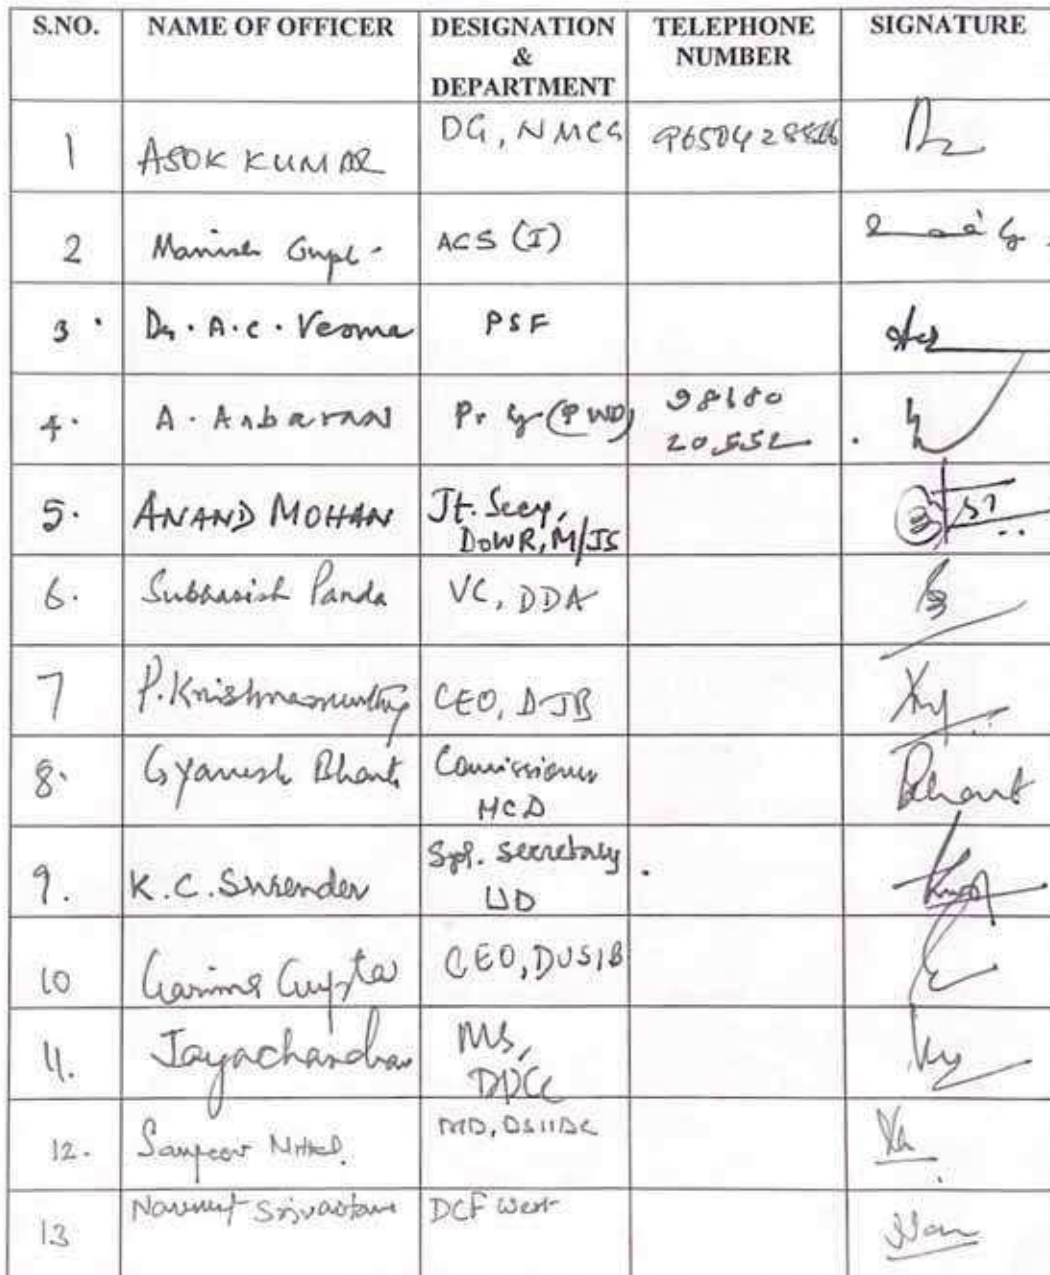 S.NO. NAME OF OFFICER DESIGNATION & DEPARTMENT TELEPHONE NUMBER SIGNATURE
1 ASOK KUMAR DG, NMCG
2 Manish Gupta ACS (I)
3. Dr. A.C. Verma PSF
4. A. Anbarasu Pr Sy (PWD) 98180 20552
5. ANAND MOHAN Jt. Secy, DoWR, M/JS
6. Subhasish Panda VC, DDA
7 P. Krishnamurthy CEO, DJB
8. Gyanesh Bharti Commissioner MCD Bharti
9. K.C. Surender Spl. Secretary UD
10 Garima Gupta CEO, DUSIB
11. Jayachandran MS, DPCC
12. Sanjeev Mittal MD, DSIIDC
13 Navneet Srivastava DCF West